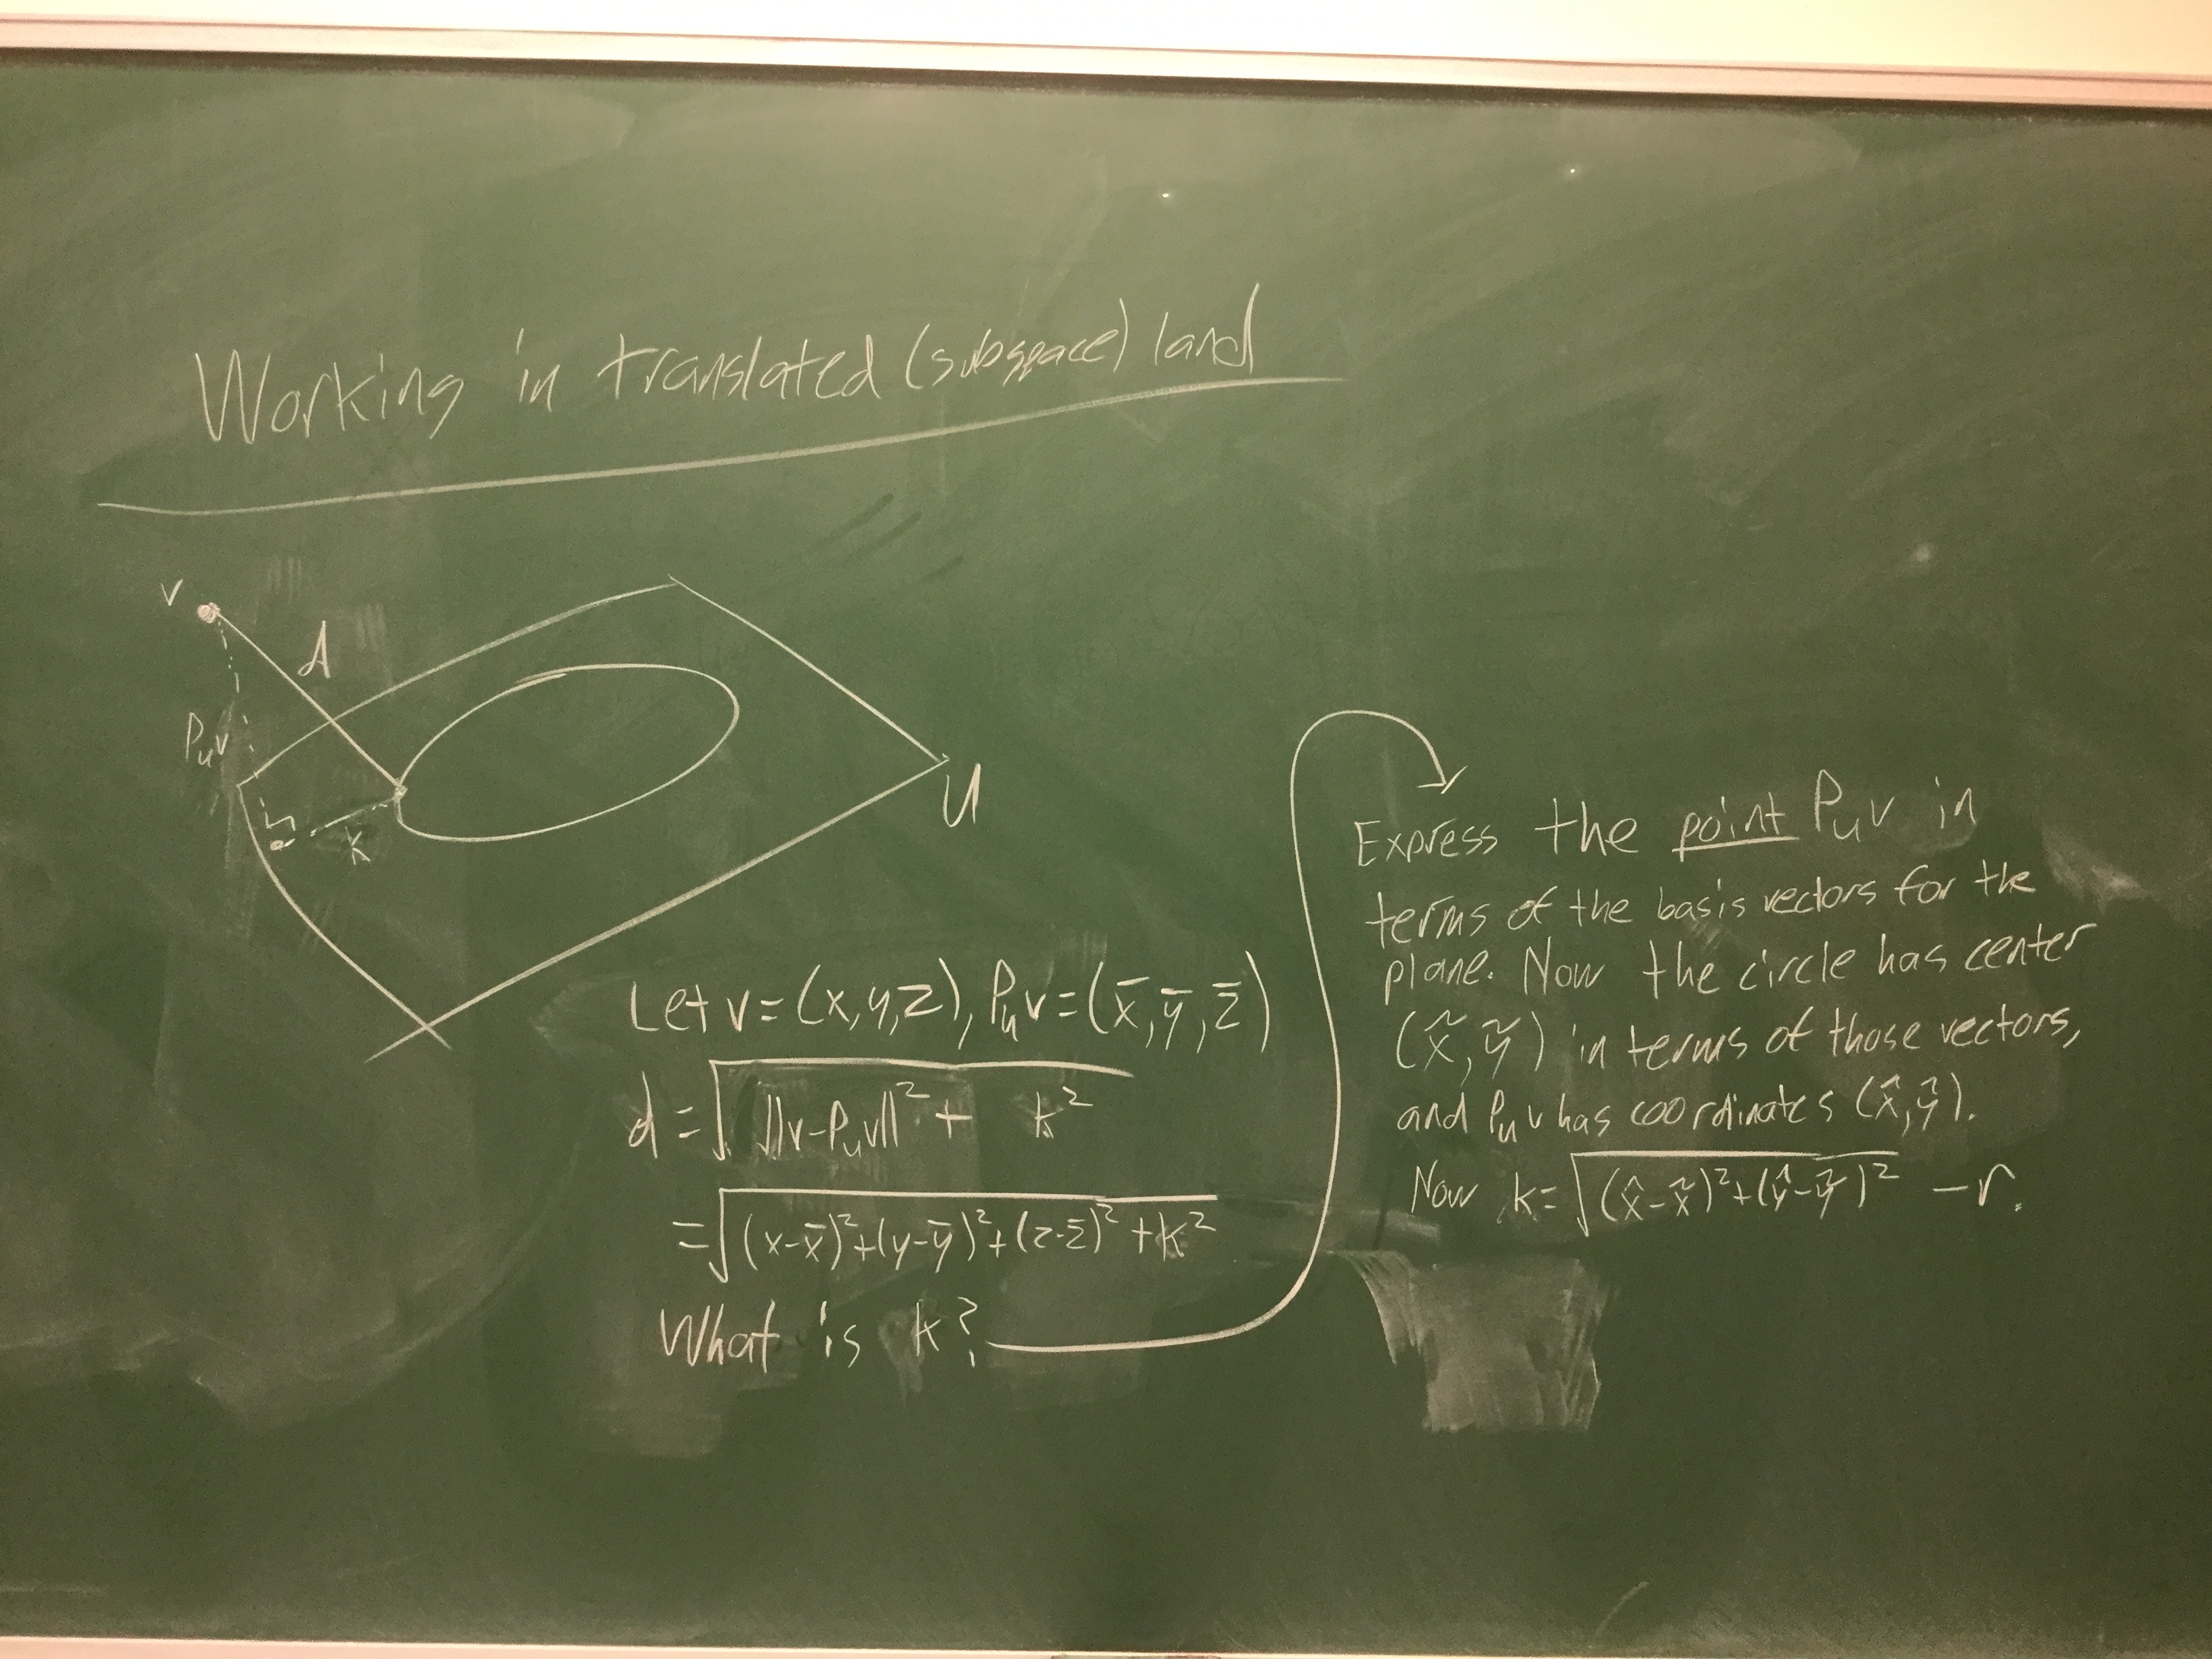 Working in translated (subspace) land
v
d
P_u v
k
U
Let v = (x, y, z), P_u v = (x̄, ȳ, z̄)
d = √(||v - P_u v||² + k²)
= √((x-x̄)² + (y-ȳ)² + (z-z̄)² + k²)
What is k?
Express the point P_u v in
terms of the basis vectors for the
plane. Now the circle has center
(x̃, ỹ) in terms of those vectors,
and P_u v has coordinates (x̂, ŷ).
Now k = √((x̂-x̃)² + (ŷ-ỹ)²) - r.